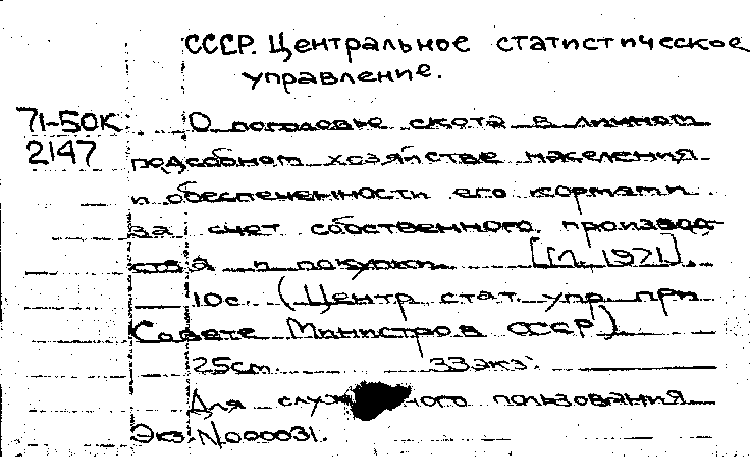 СССР. Центральное статистическое
управление.
71-50К
2147
О поголовье скота в личном
подсобном хозяйстве населения
и обеспеченности его кормами
за счет собственного производ-
ства и покупки [М., 1971].
10с. (Центр стат. упр. при
Совете Министров СССР).
25см. 33экз.
Для ного пользования
Экз. N000031.